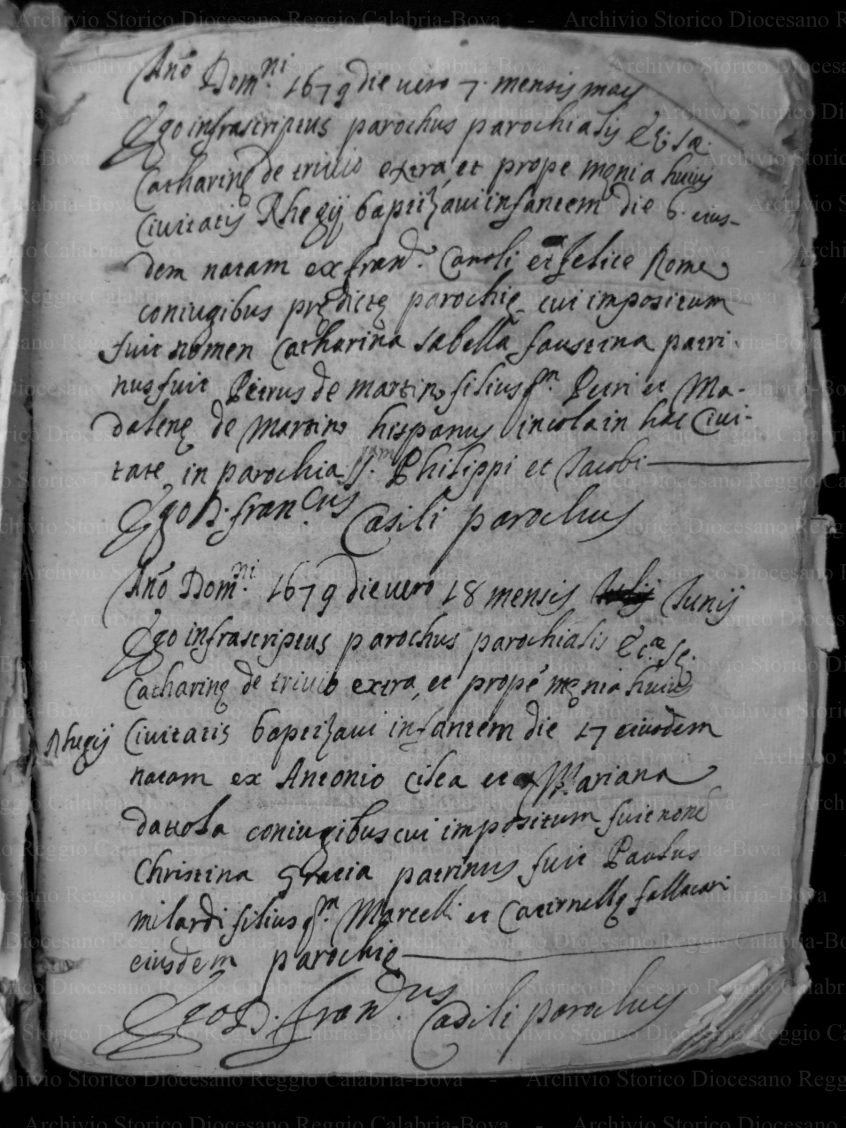 Anno Dom.ni 1679 die uero 7. mensis maij
Ego infrascriptus parochus parochialis Eccl.æ S.æ
Catharinę de triuio extra, et prope męnia huius
Ciuitatis Rhegij baptizaui infantem die 6. eius-
dem natam ex fran.co Caroli et felice Rome
coniugibus prędictę parochię cui impositum
fuit nomen Catharina Isabella faustina patri-
nus fuit Petrus de martino filius q.m Petri et Ma-
dalenę de Martino hispanus incola in hac Ciui-
tate in parochia SS. Philippi et Jacobi
Ego D. fran.cus Casili parochus
Anno Dom.ni 1679 die uero 18 mensis Junij
Ego infrascriptus parochus parochialis Ec.æ S.ę
Catharinę de triuio extra, et prope męnia huius
Rhegij Ciuitatis baptizaui infantem die 17 eiusdem
natam ex Antonio cilea et Mariana
dattola coniugibus cui impositum fuit nome
Christina Gratia patrinus fuit Paulus
milardi filius q.m Marcelli et Catirnellę fallacari
eiusdem parochię
Ego D. fran.cus Casili parochus
Archivio Storico Diocesano Reggio Calabria-Bova